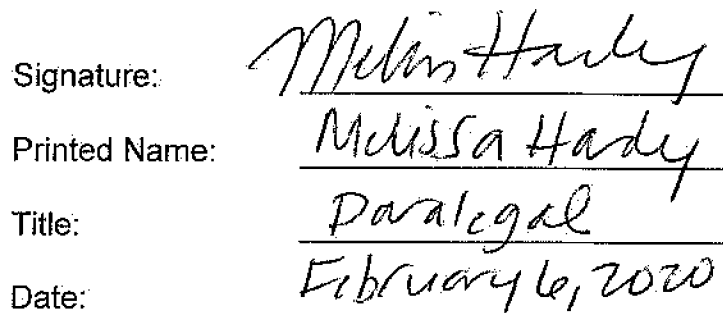 Signature: Melissa Hardy
Printed Name: Melissa Hardy
Title: Paralegal
Date: February 6, 2020